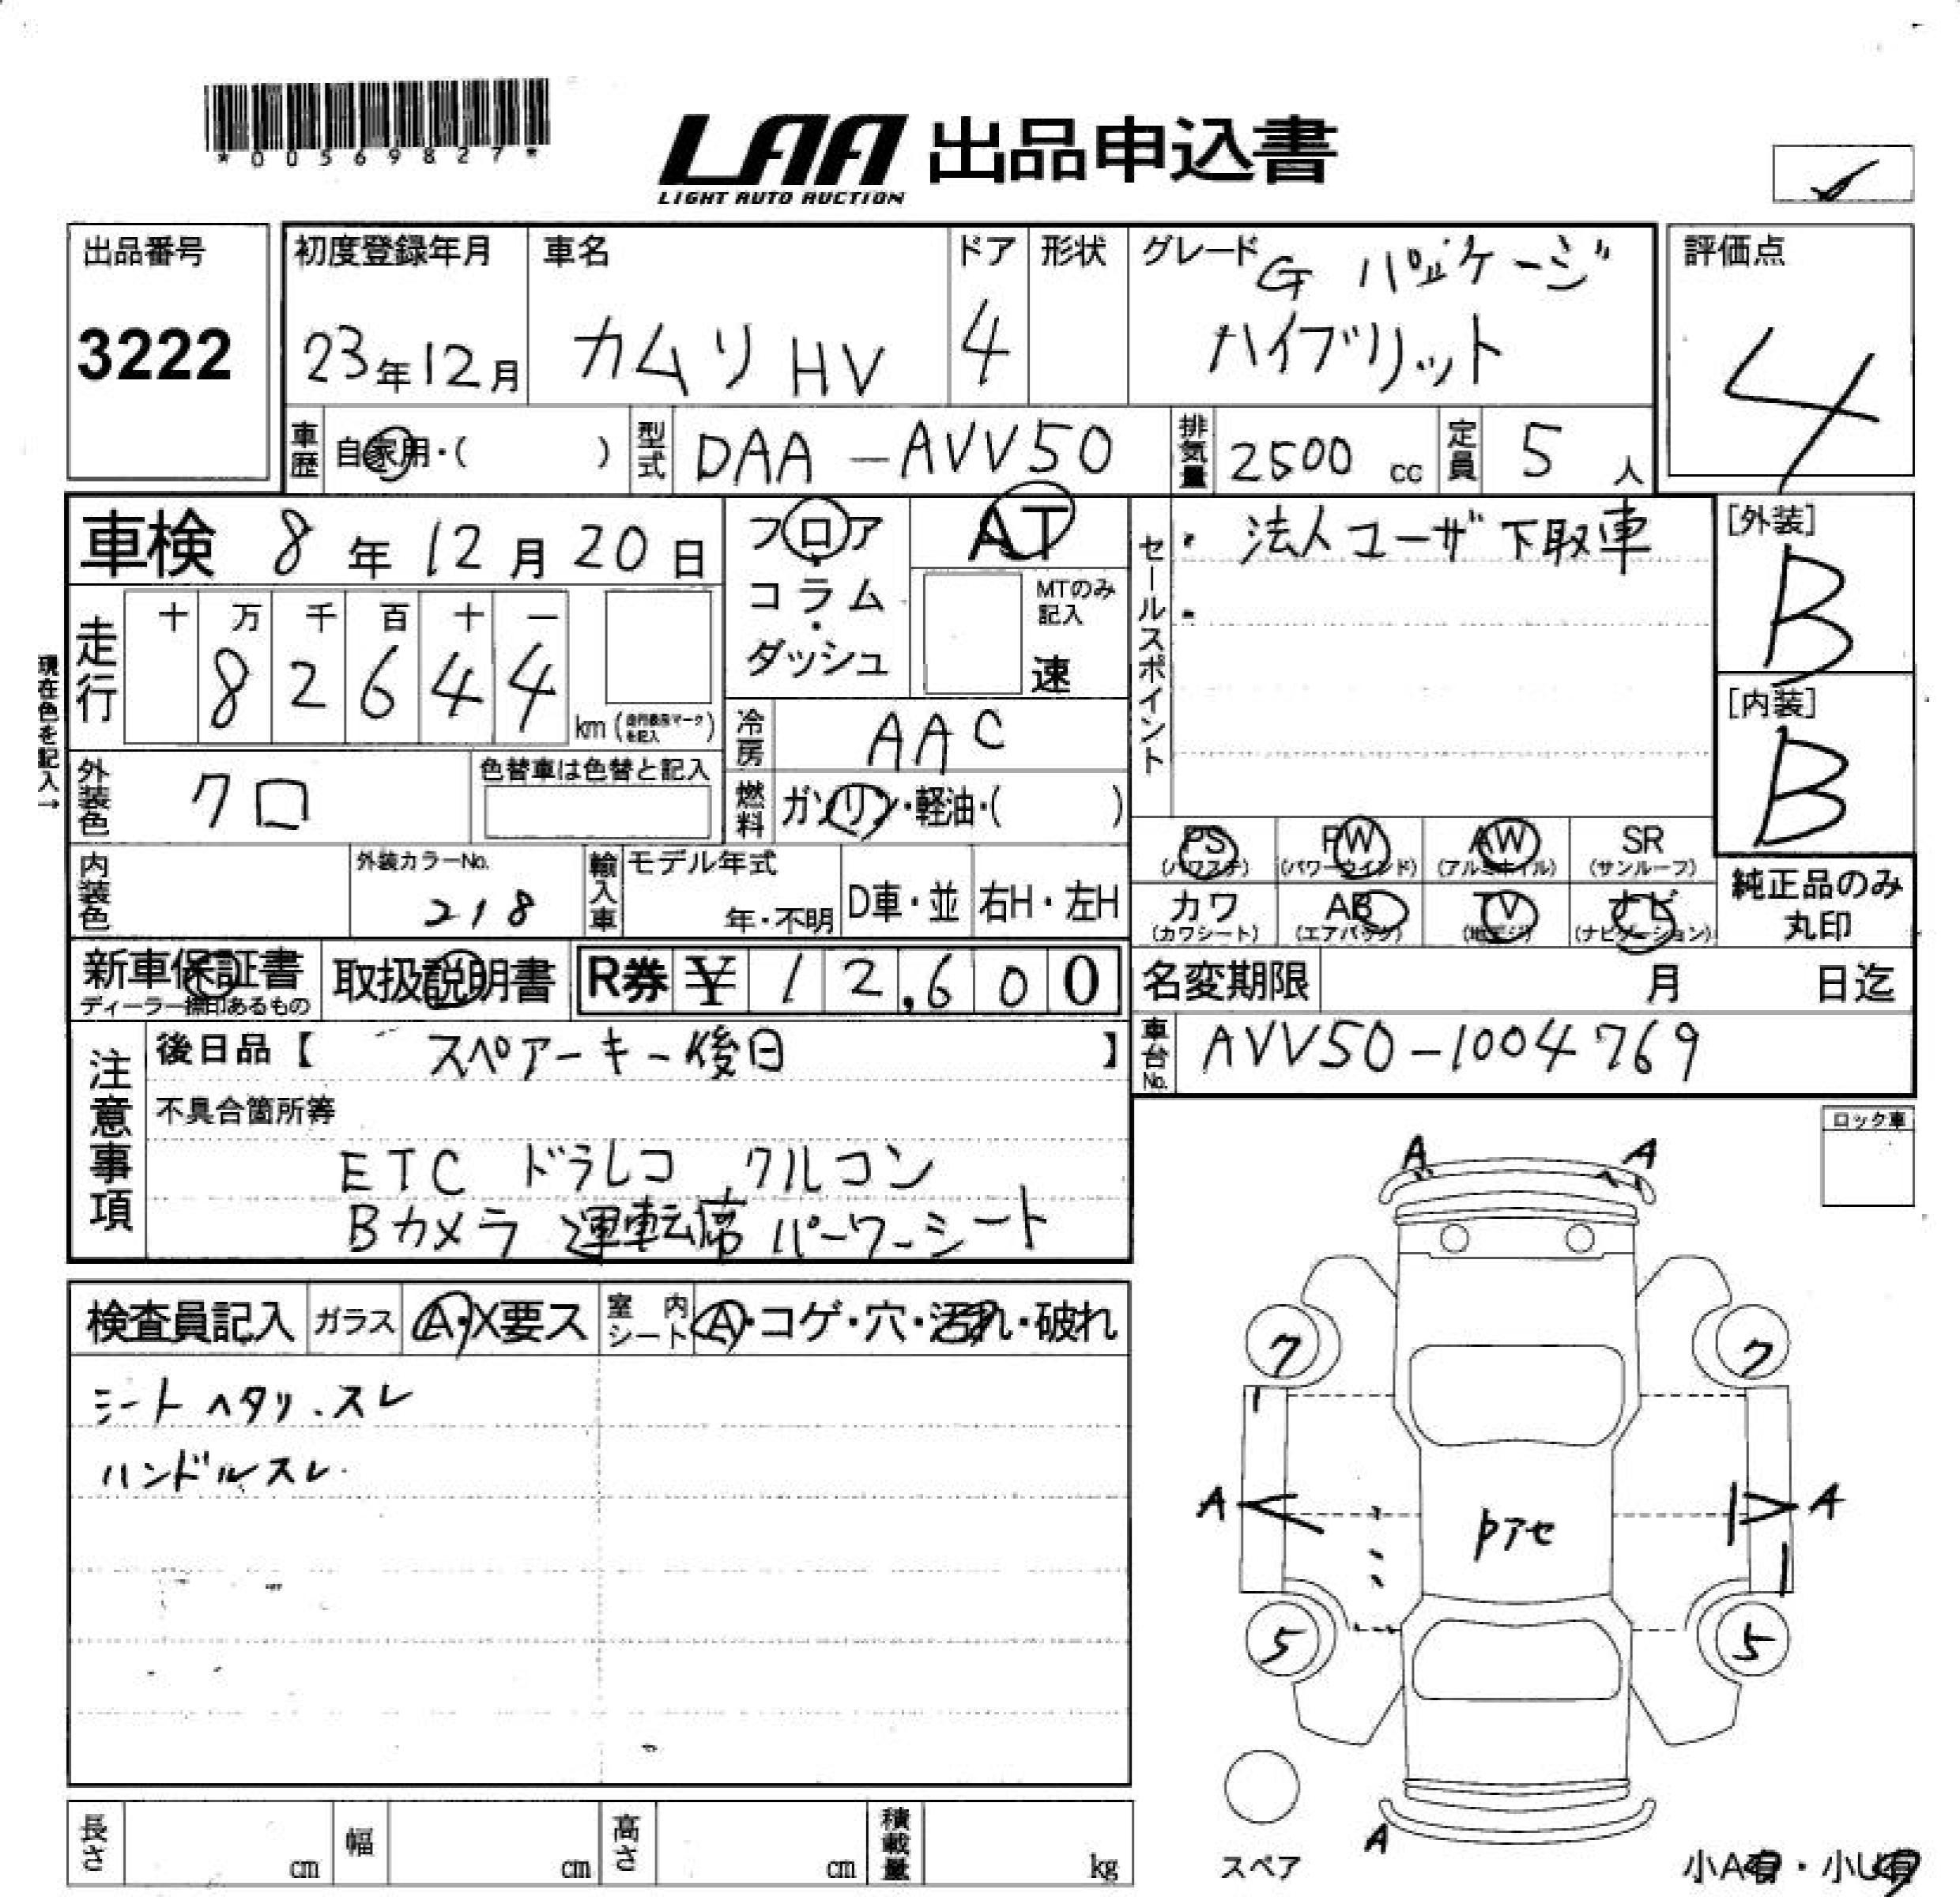 *00569827*
LAA 出品申込書
LIGHT AUTO AUCTION
出品番号
3222
初度登録年月
23年12月
車名
カムリ HV
ドア
4
形状
グレード
G パッケージ
ハイブリット
評価点
4
車歴
自家用・( )
型式
DAA-AVV50
排気量
2500 cc
定員
5 人
車検 8 年 12 月 20 日
フロア・コラム・ダッシュ
AT
MTのみ記入
速
セールスポイント
・ 法人ユーザ下取車
・
[外装]
B
[内装]
B
現在色を記入→
走行
十 万 千 百 十 一
8 2 6 4 4
km (走行最深マークを記入)
冷房
AAC
外装色
クロ
色替車は色替と記入
燃料
ガソリン・軽油・( )
PS (パワステ)
PW (パワーウインド)
AW (アルミホイル)
SR (サンルーフ)
カワ (カワシート)
AB (エアバック)
TV (地デジ)
ナビ (ナビゲーション)
純正品のみ
丸印
内装色
外装カラーNo.
218
輸入車
モデル年式
年・不明
D車・並
右H・左H
新車保証書
ディーラー捺印あるもの
取扱説明書
R券 ¥ 12,600
名変期限 月 日迄
車台No.
AVV50-1004769
注意事項
後日品【 スペアーキー後日 】
不具合箇所等
ETC ドラレコ クルコン
Bカメラ 運転席 パーワーシート
ロック車
検査員記入
ガラス
A・X要ス
室内シート
A・コゲ・穴・汚れ・破れ
シートヘタリ.スレ
ハンドルスレ.
A A
7 7
A A
アセ
5 5
A
スペア
小A有・小U有
長さ cm
幅 cm
高さ cm
積載量 kg